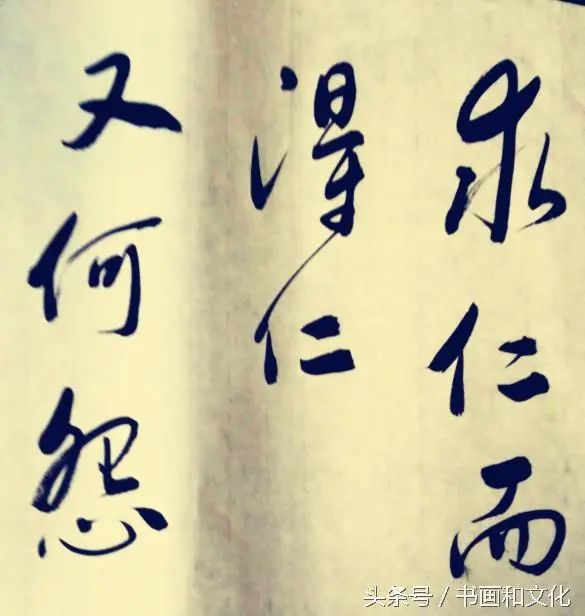 求仁而
得仁
又何怨
头条号/书画和文化